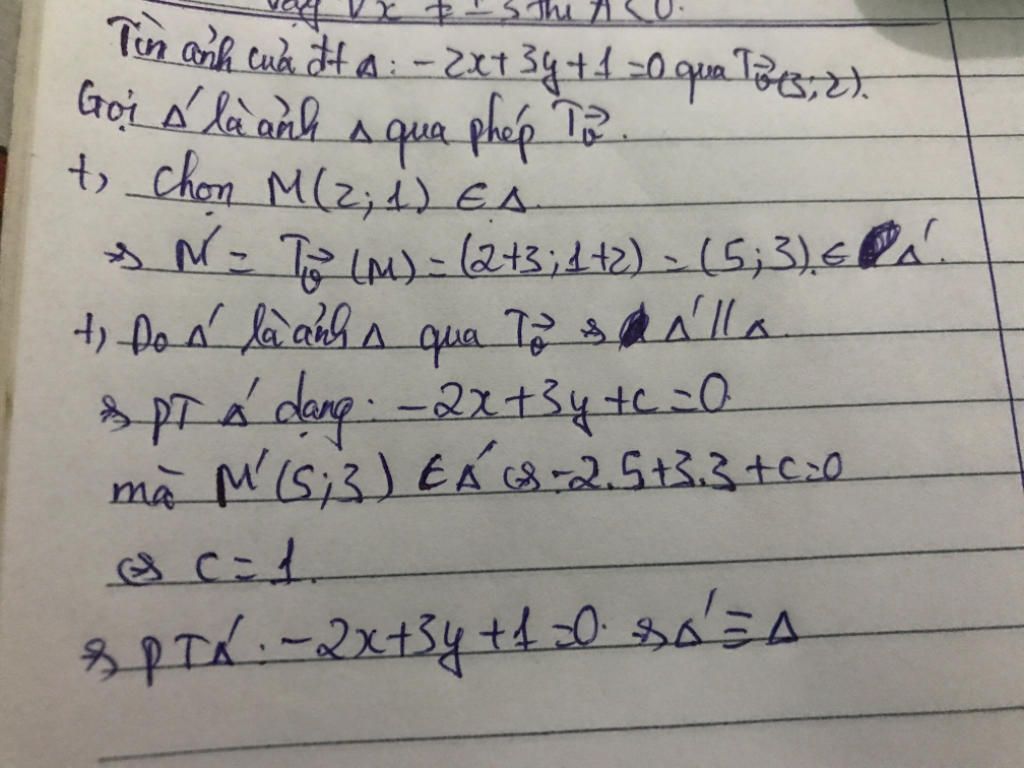 vậy ∀x ≠ ± 3 thì A < 0.
Tìm ảnh của đt Δ: -2x+3y+1=0 qua T_v⃗(3;2).
Gọi Δ' là ảnh Δ qua phép T_v⃗.
+, Chọn M(2;1) ∈ Δ
⇒ M' = T_v⃗(M) = (2+3;1+2) = (5;3). ∈ Δ'.
+, Do Δ' là ảnh Δ qua T_v⃗ ⇒ Δ' // Δ
⇒ PT Δ' dạng: -2x+3y+c=0
mà M'(5;3) ∈ Δ' ⇔ -2.5+3.3+c=0
⇔ c=1.
⇒ PT Δ': -2x+3y+1=0. ⇒ Δ' ≡ Δ